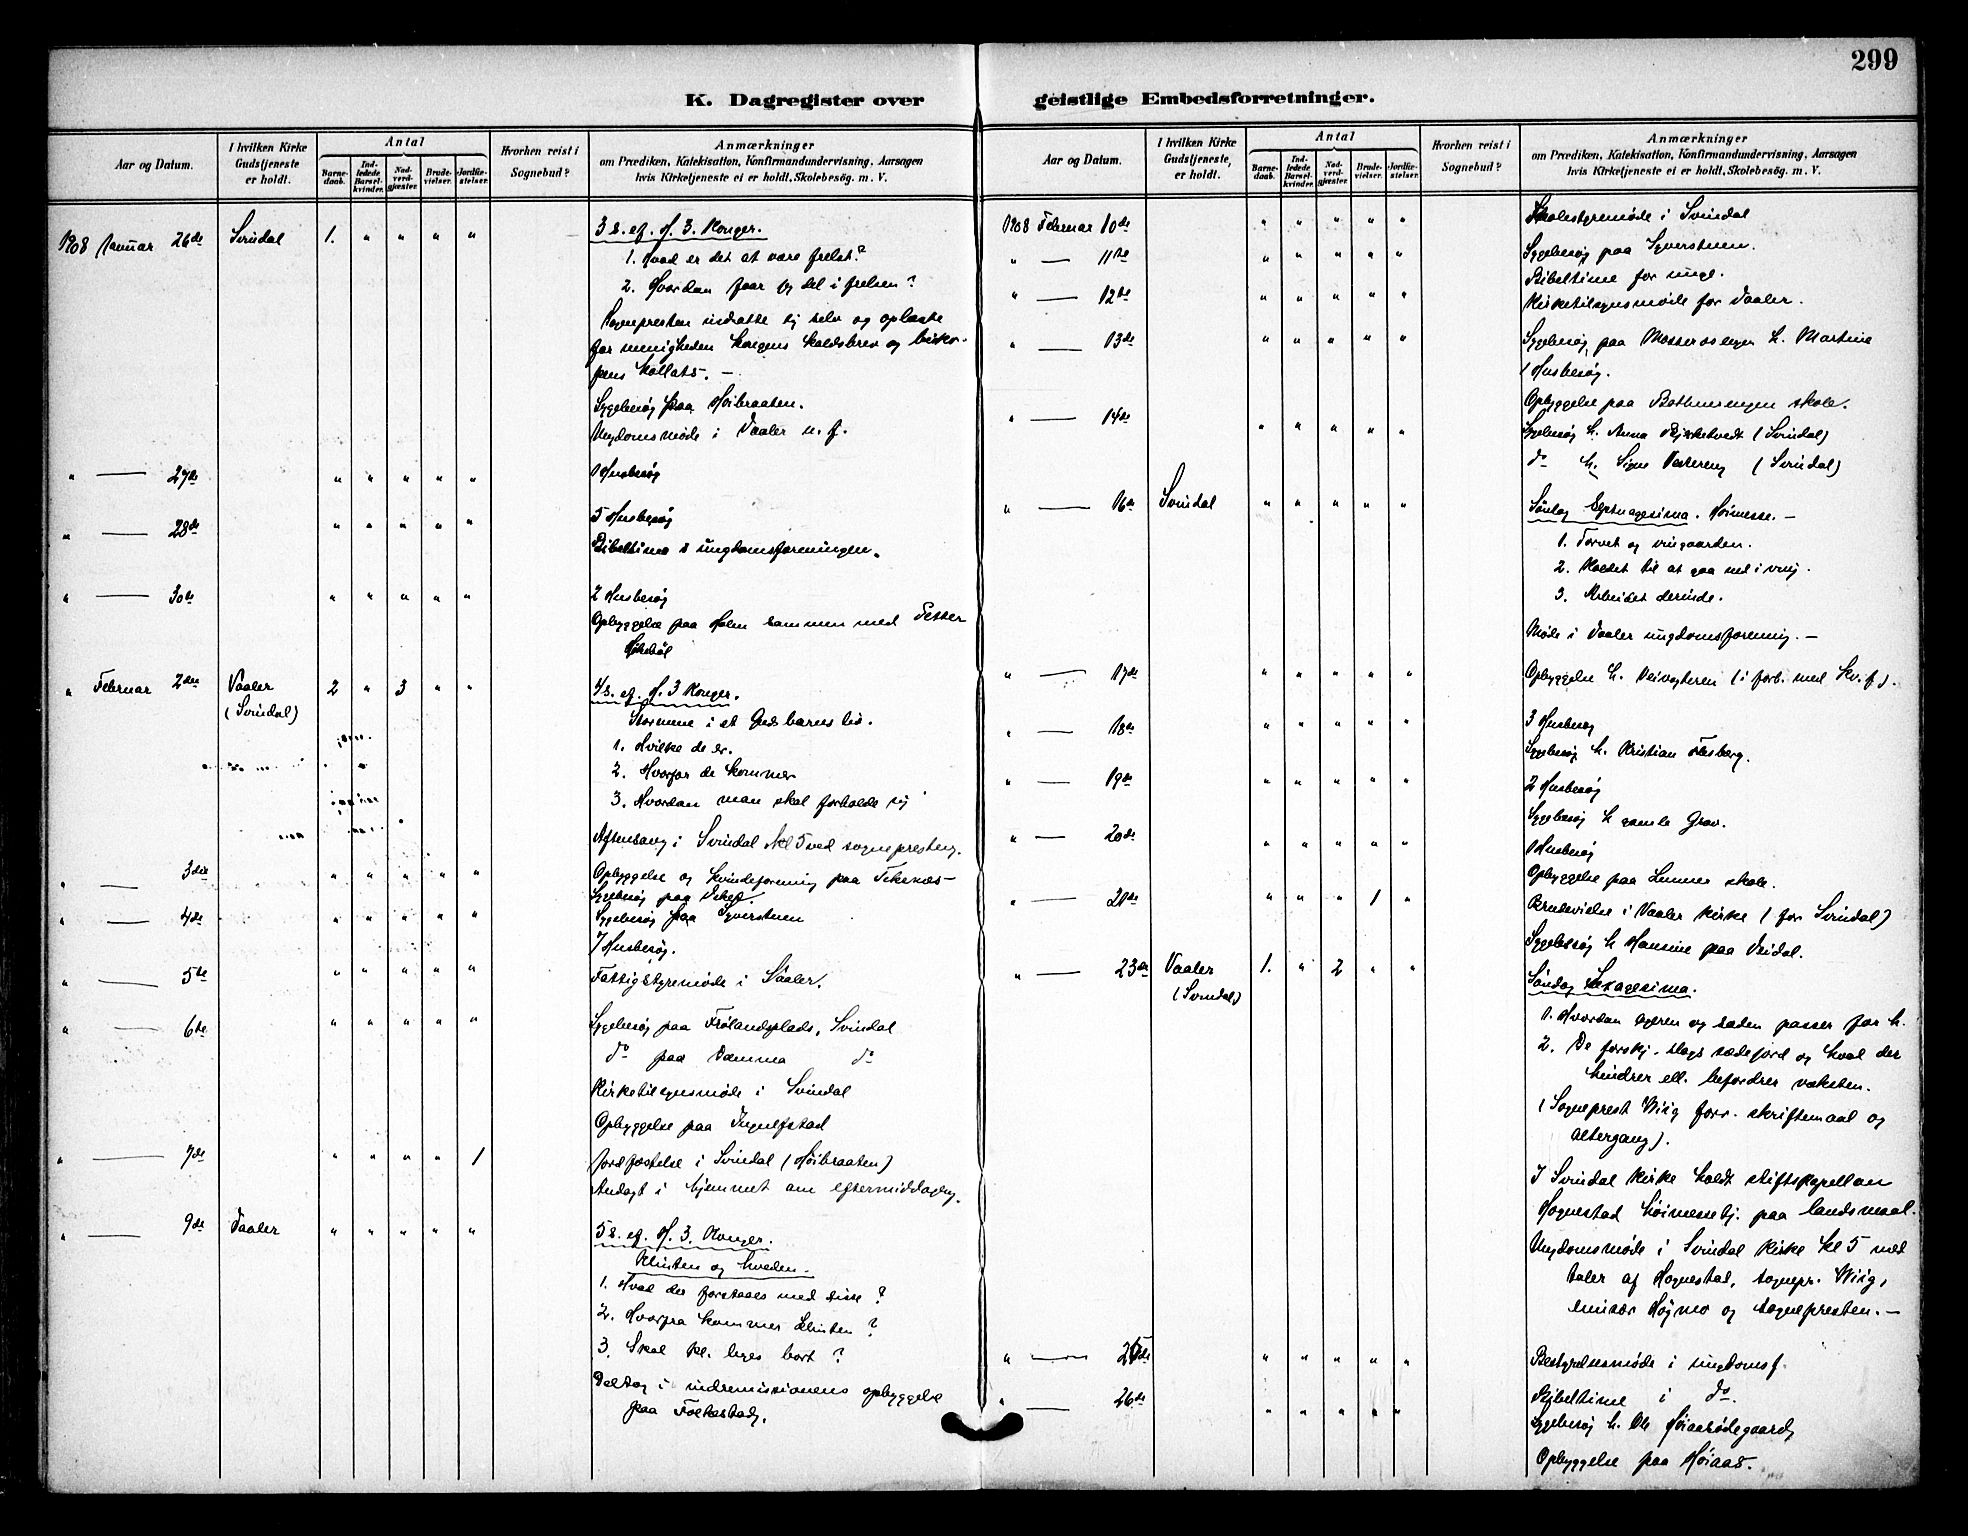 299
K. Dagregister over geistlige Embedsforretninger.
Aar og Datum.
I hvilken Kirke Gudstjeneste er holdt.
Antal
Barnedaab.
Indledede Barselkvinder.
Nadverdgjæster.
Brudevielser.
Jordfæstelser.
Hvorhen reist i Sognebud?
Anmærkninger
om Prædiken, Katekisation, Konfirmandundervisning, Aarsagen
hvis Kirketjeneste ei er holdt, Skolebesøg. m. V.
1908 Januar 26de Svindal 1. " " " " 3 s. ef. H. 3. Konger.
1. Hvad er det at være frelst?
2. Hvordan faar vi del i frelsen?
Sognepresten indsatte sig selv og oplæste
for menigheden kongens kaldsbrev og bisko-
pens kollats. —
Sygebesøg paa Høibraaten.
Ungdomsmøde i Vaaler u. f.
" — 27de " " " " " 1 Husbesøg
" — 28de " " " " " 5 Husbesøg
Bibeltime i ungdomsforeningen.
" — 30de " " " " " 2 Husbesøg
Opbyggelse paa Holm sammen med Petter
" Februar 2den Vaaler 2 " 3 " " 4 s. ef. H. 3 Konger.
(Svindal) Stormene i et Guds barns liv.
1. Hvilke de er.
2. Hvorfor de kommer
3. Hvordan man skal forholde sig
Aftensang i Svindal kl 5 ved sognepresten.
" — 3die " " " " " Opbyggelse og kvindeforening paa Teksnæs —
Sygebesøg paa
" — 4de " " " " " Sygebesøg paa Syverstuen
7 Husbesøg.
" — 5te " " " " " Fattigstyremøde i Vaaler.
" — 6te " " " " " Sygebesøg paa Frølandsplads, Svindal
do paa Damma do
Kirketilsynsmøde i Svindal
Opbyggelse paa Ingulfstad
" — 7de " " " " 1 Jordfæstelse i Svindal (Høibraaten)
Andagt i hjemmet om eftermiddagen.
" — 9de Vaaler " " " " " 5 s. ef. H. 3. Konger.
Klinten og hveden.
1. Hvad der forstaaes med disse?
2. Hvorfra kommer klinten?
3. Skal kl. luges bort?
Deltog i indremissionens opbyggelse
paa Folkestad.
Aar og Datum.
I hvilken Kirke Gudstjeneste, er holdt.
Antal
Barnedaab.
Indledede Barselkvinder.
Nadverdgjæster.
Brudevielser.
Jordfæstelser.
Hvorhen reist i Sognebud?
Anmærkninger
om Prædiken, Katekisation, Konfirmandundervisning, Aarsagen
hvis Kirketjeneste ei er holdt, Skolebesøg. m. V.
1908 Februar 10de " " " " " Skolestyremøde i Svindal
" — 11te " " " " " Sygebesøg paa Syverstuen.
Bibeltime for unge.
" — 12te " " " " " Kirketilsynsmøde for Vaaler.
" — 13de " " " " " Sygebesøg paa h. Martine
1 Husbesøg.
Opbyggelse paa Bothnerengen skole.
" — 14de " " " " " Sygebesøg h. Anna Birketvedt (Svindal)
do h. Signe Vestereng (Svindal)
" — 16de Svindal " " " " " Søndag Septuagesima. Høimesse. —
1. Torvet og vingaarden.
2. Kaldet til at gaa ind i ving.
3. Arbeidet derinde.
Møde i Vaaler ungdomsforening. —
" — 17de " " " " " Opbyggelse h. Veivogteren (i forb. med Kv. f).
" — 18de " " " " " 3 Husbesøg
Sygebesøg h. Kristian Flesberg.
" — 19de " " " " " 2 Husbesøg
Sygebesøg h gamle Grav.
" — 20de " " " " " 1 Husbesøg
Opbyggelse paa Lunner skole.
" — 21de " " " 1 " Brudevielse i Vaaler Kirke (for Svindal)
Sygebesøg h Hansine paa Veidal.
" — 23de Vaaler 1. " 2 " " Søndag Sexagesima.
(Svindal) 1. Hvordan ageren og sæden passer for h.
2. De forskj. slags sædejord og hvad der
hindrer ell. befordrer væksten.
(Sogneprest Wiig forr. skriftemaal og
altergang).
I Svindal Kirke holdt stiftskapellan
Hognestad høimessetj. paa landsmaal.
Ungdomsmøde i Svindal Kirke kl 5 med
taler af Hognestad, sognepr. Wiig,
emissær Højmo og sognepresten. —
" — 25de " " " " " Bestyrelsesmøde i ungdomsf.
" — 26de " " " " " Bibeltime i do.
Sygebesøg h. Ole Høiaasødegaard,
Opbyggelse paa Høiaas.